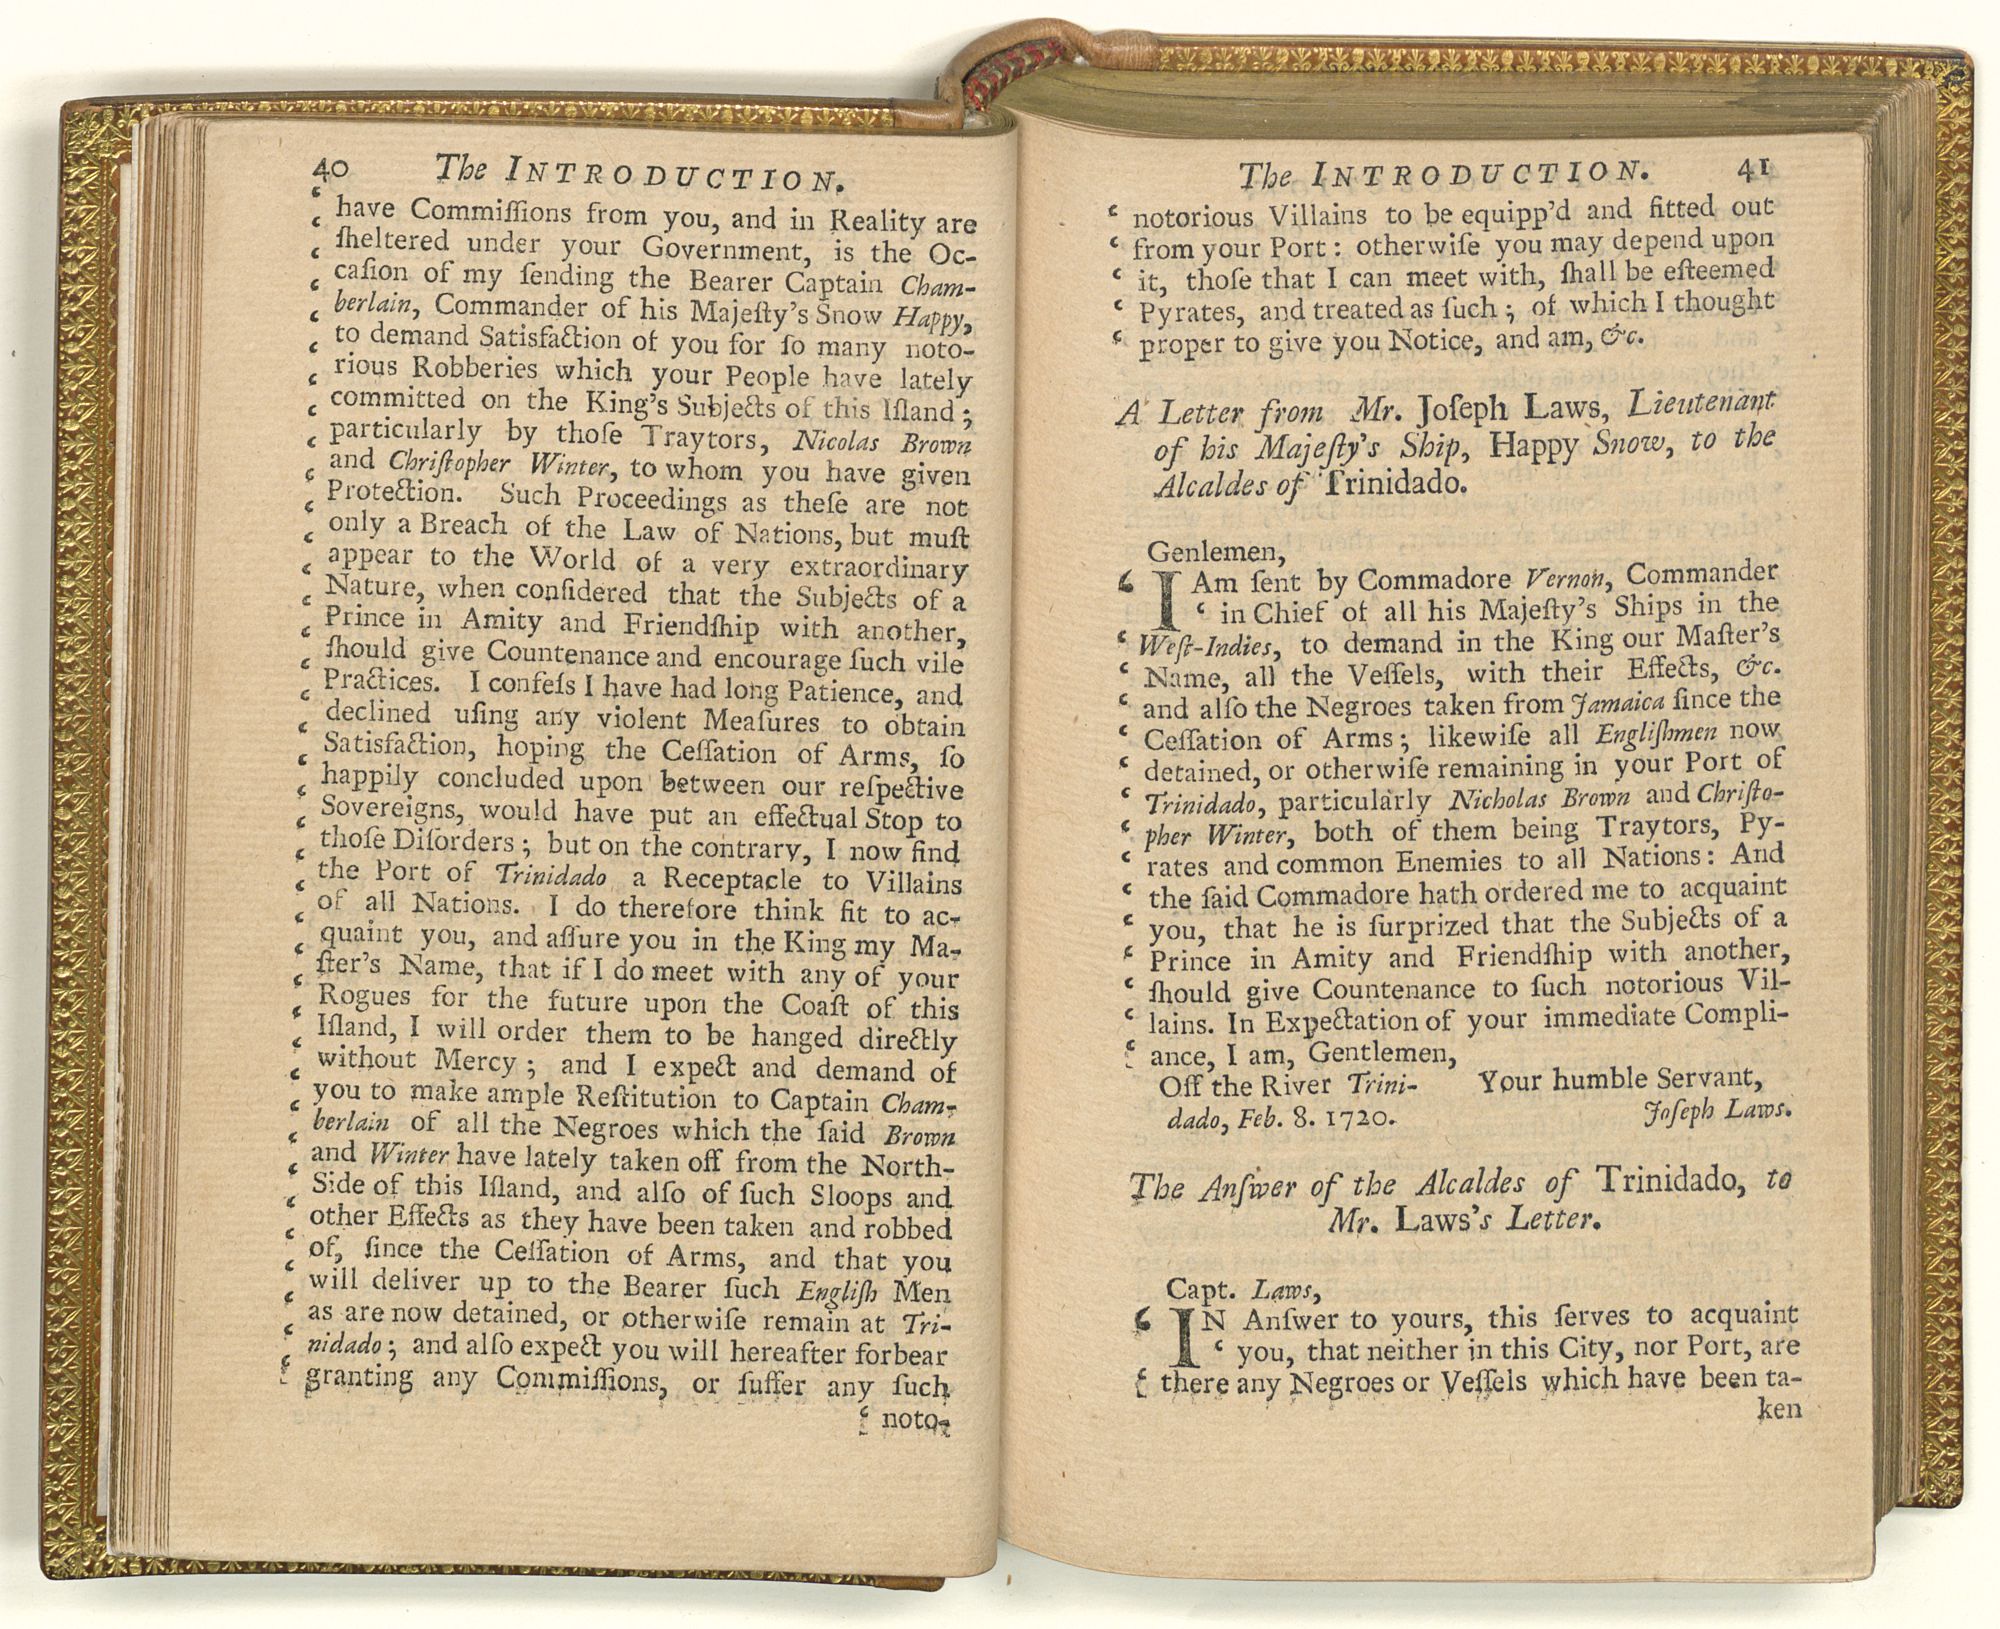 40 The INTRODUCTION.
‘ have Commiſſions from you, and in Reality are
‘ ſheltered under your Government, is the Oc-
‘ caſion of my ſending the Bearer Captain Cham-
‘ berlain, Commander of his Majeſty's Snow Happy,
‘ to demand Satisfaction of you for ſo many noto-
‘ rious Robberies which your People have lately
‘ committed on the King's Subjects of this Iſland;
‘ particularly by thoſe Traytors, Nicolas Brown
‘ and Chriſtopher Winter, to whom you have given
‘ Protection. Such Proceedings as theſe are not
‘ only a Breach of the Law of Nations, but muſt
‘ appear to the World of a very extraordinary
‘ Nature, when conſidered that the Subjects of a
‘ Prince in Amity and Friendſhip with another,
‘ ſhould give Countenance and encourage ſuch vile
‘ Practices. I confeſs I have had long Patience, and
‘ declined uſing any violent Meaſures to obtain
‘ Satisfaction, hoping the Ceſſation of Arms, ſo
‘ happily concluded upon between our reſpective
‘ Sovereigns, would have put an effectual Stop to
‘ thoſe Diſorders; but on the contrary, I now find
‘ the Port of Trinidado a Receptacle to Villains
‘ of all Nations. I do therefore think fit to ac-
‘ quaint you, and aſſure you in the King my Ma-
‘ ſter's Name, that if I do meet with any of your
‘ Rogues for the future upon the Coaſt of this
‘ Iſland, I will order them to be hanged directly
‘ without Mercy; and I expect and demand of
‘ you to make ample Reſtitution to Captain Cham-
‘ berlain of all the Negroes which the ſaid Brown
‘ and Winter have lately taken off from the North-
‘ Side of this Iſland, and alſo of ſuch Sloops and
‘ other Effects as they have been taken and robbed
‘ of, ſince the Ceſſation of Arms, and that you
‘ will deliver up to the Bearer ſuch Engliſh Men
‘ as are now detained, or otherwiſe remain at Tri-
‘ nidado; and alſo expect you will hereafter forbear
‘ granting any Commiſſions, or ſuffer any ſuch
‘ noto-
The INTRODUCTION. 41
‘ notorious Villains to be equipp'd and fitted out
‘ from your Port: otherwiſe you may depend upon
‘ it, thoſe that I can meet with, ſhall be eſteemed
‘ Pyrates, and treated as ſuch; of which I thought
‘ proper to give you Notice, and am, &c.
A Letter from Mr. Joſeph Laws, Lieutenant
of his Majeſty's Ship, Happy Snow, to the
Alcaldes of Trinidado.
Genlemen,
‘ I Am ſent by Commadore Vernon, Commander
‘ in Chief of all his Majeſty's Ships in the
‘ Weſt-Indies, to demand in the King our Maſter's
‘ Name, all the Veſſels, with their Effects, &c.
‘ and alſo the Negroes taken from Jamaica ſince the
‘ Ceſſation of Arms; likewiſe all Engliſhmen now
‘ detained, or otherwiſe remaining in your Port of
‘ Trinidado, particularly Nicholas Brown and Chriſto-
‘ pher Winter, both of them being Traytors, Py-
‘ rates and common Enemies to all Nations: And
‘ the ſaid Commadore hath ordered me to acquaint
‘ you, that he is ſurprized that the Subjects of a
‘ Prince in Amity and Friendſhip with another,
‘ ſhould give Countenance to ſuch notorious Vil-
‘ lains. In Expectation of your immediate Compli-
‘ ance, I am, Gentlemen,
Off the River Trini- Your humble Servant,
dado, Feb. 8. 1720. Joſeph Laws.
The Anſwer of the Alcaldes of Trinidado, to
Mr. Laws's Letter.
Capt. Laws,
‘ IN Anſwer to yours, this ſerves to acquaint
‘ you, that neither in this City, nor Port, are
‘ there any Negroes or Veſſels which have been ta-
ken